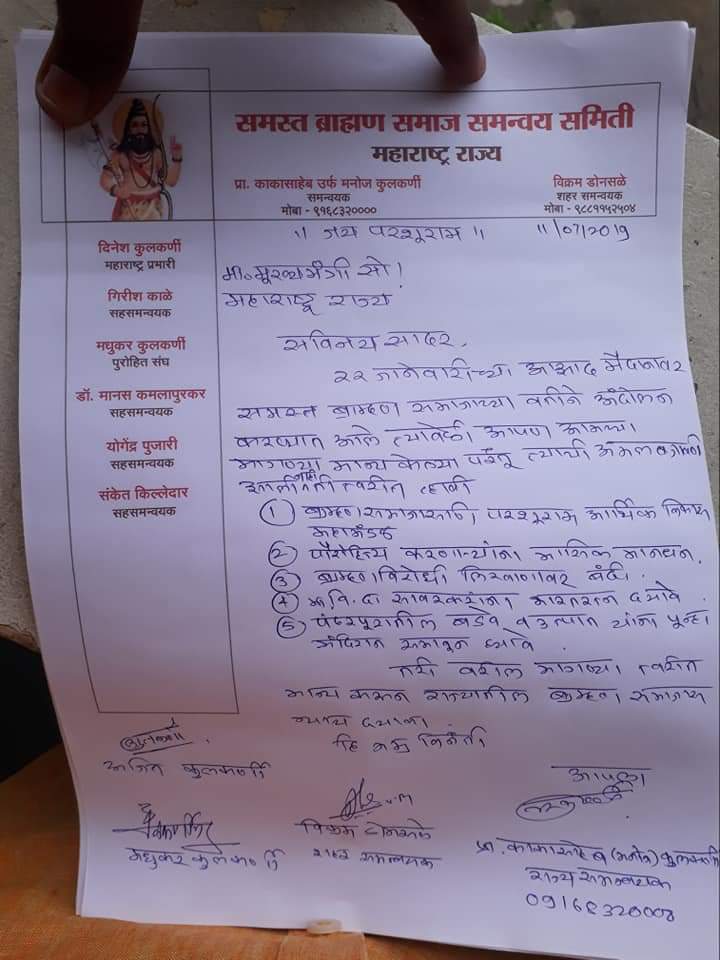 समस्त ब्राह्मण समाज समन्वय समिती
महाराष्ट्र राज्य
प्रा. काकासाहेब उर्फ मनोज कुलकर्णी
समन्वयक
मोबा - ९१६८३२००००
विक्रम डोनसळे
शहर समन्वयक
मोबा - ९८८११५२५०४
दिनेश कुलकर्णी
महाराष्ट्र प्रभारी
गिरीश काळे
सहसमन्वयक
मधुकर कुलकर्णी
पुरोहित संघ
डॉ. मानस कमलापुरकर
सहसमन्वयक
योगेंद्र पुजारी
सहसमन्वयक
संकेत किल्लेदार
सहसमन्वयक
॥ जय परशुराम ॥ 11/07/2019
मा. मुख्यमंत्री सो!
महाराष्ट्र राज्य
सविनय सादर,
२२ जानेवारीच्या आझाद मैदानावर
समस्त ब्राम्हण समाजाच्या वतीने आंदोलन
करण्यात आले त्यावेळी आपण आमच्या
मागण्या मान्य केल्या परंतू त्याची अमलबजावणी
झाली नाही ती त्वरीत व्हावी
① ब्राम्हण समाजासाठी परशुराम आर्थिक विकास
महामंडळ
② पौरोहित्य करणाऱ्यांना मासिक मानधन.
③ ब्राम्हण विरोधी लिखाणावर बंदी.
④ स्वा. वि. दा सावरकरांना भारतरत्न द्यावे.
⑤ पंढरपूरातील बडवे व उत्पात यांना पून्हा
मंदिरात सामावून घ्यावे.
तरी वरील मागण्या त्वरीत
मान्य करून राज्यातील ब्राम्हण समाजास
न्याय द्यावा
हि नम्र विनंती
अजित कुलकर्णी
मधुकर कुलकर्णी
विक्रम डोनसळे
शहर समन्वयक
आपला
प्रा. काकासाहेब (मनोज) कुलकर्णी
राज्य समन्वयक
09168320000